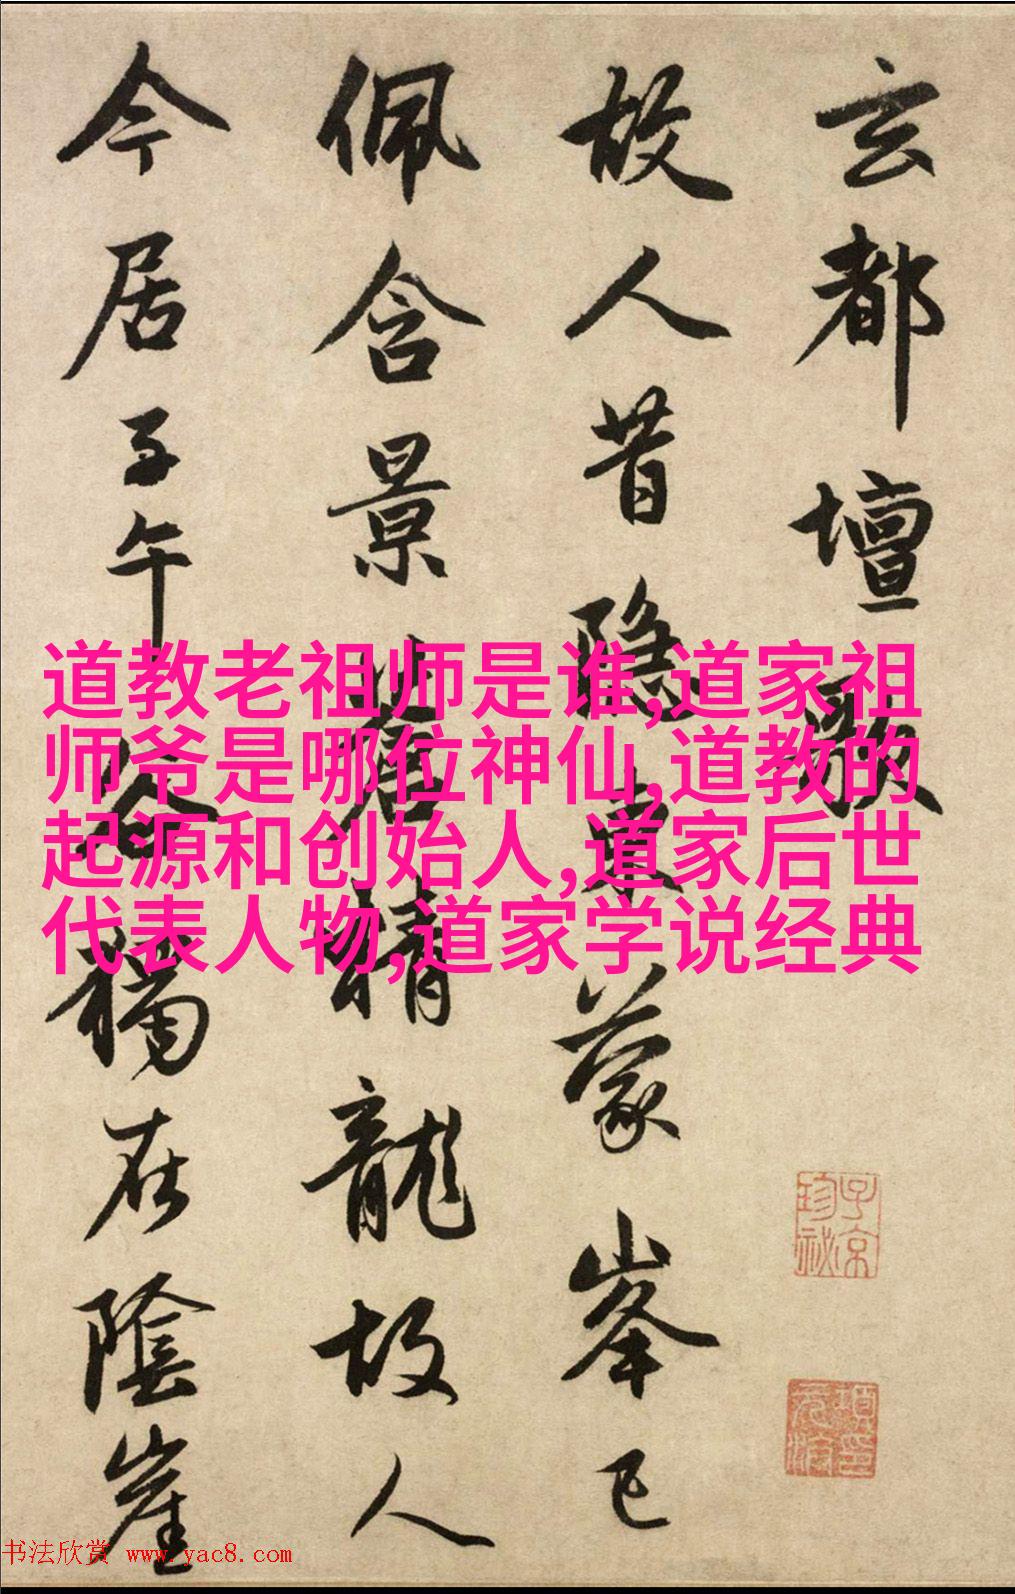 玄都壇歌
故人昔隱東蒙峯已
佩含景蒼精龍故人
今居子午谷獨在陰崖
道教老祖师是谁,道家祖
师爷是哪位神仙,道教的
起源和创始人,道家后世
代表人物,道家学说经典
子京
珍祕
书法欣赏 www.yac8.com